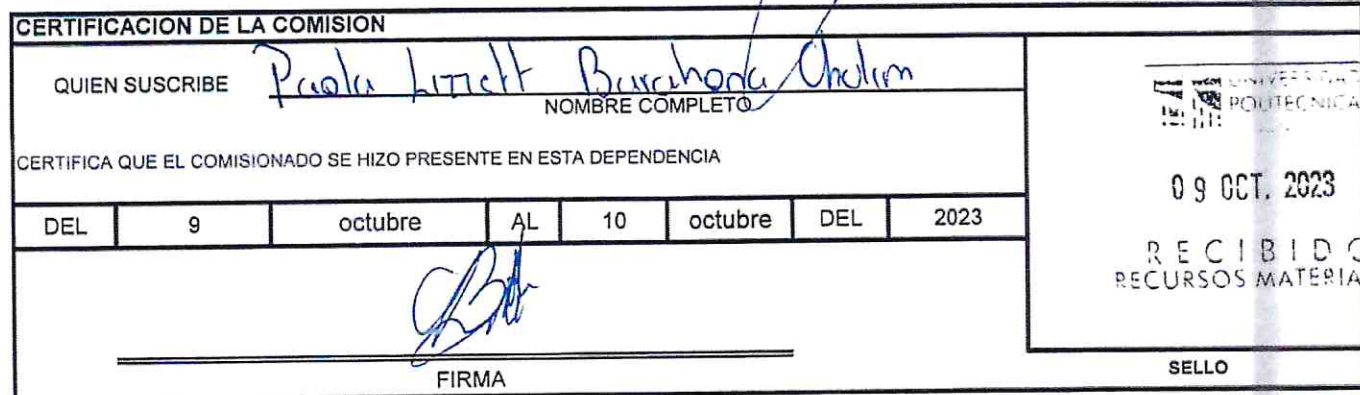 CERTIFICACION DE LA COMISION
QUIEN SUSCRIBE Paola Barahona
NOMBRE COMPLETO
CERTIFICA QUE EL COMISIONADO SE HIZO PRESENTE EN ESTA DEPENDENCIA
DEL 9 octubre AL 10 octubre DEL 2023
FIRMA
UNIVERSIDAD
POLITECNICA
09 OCT. 2023
RECIBIDO
RECURSOS MATERIA
SELLO